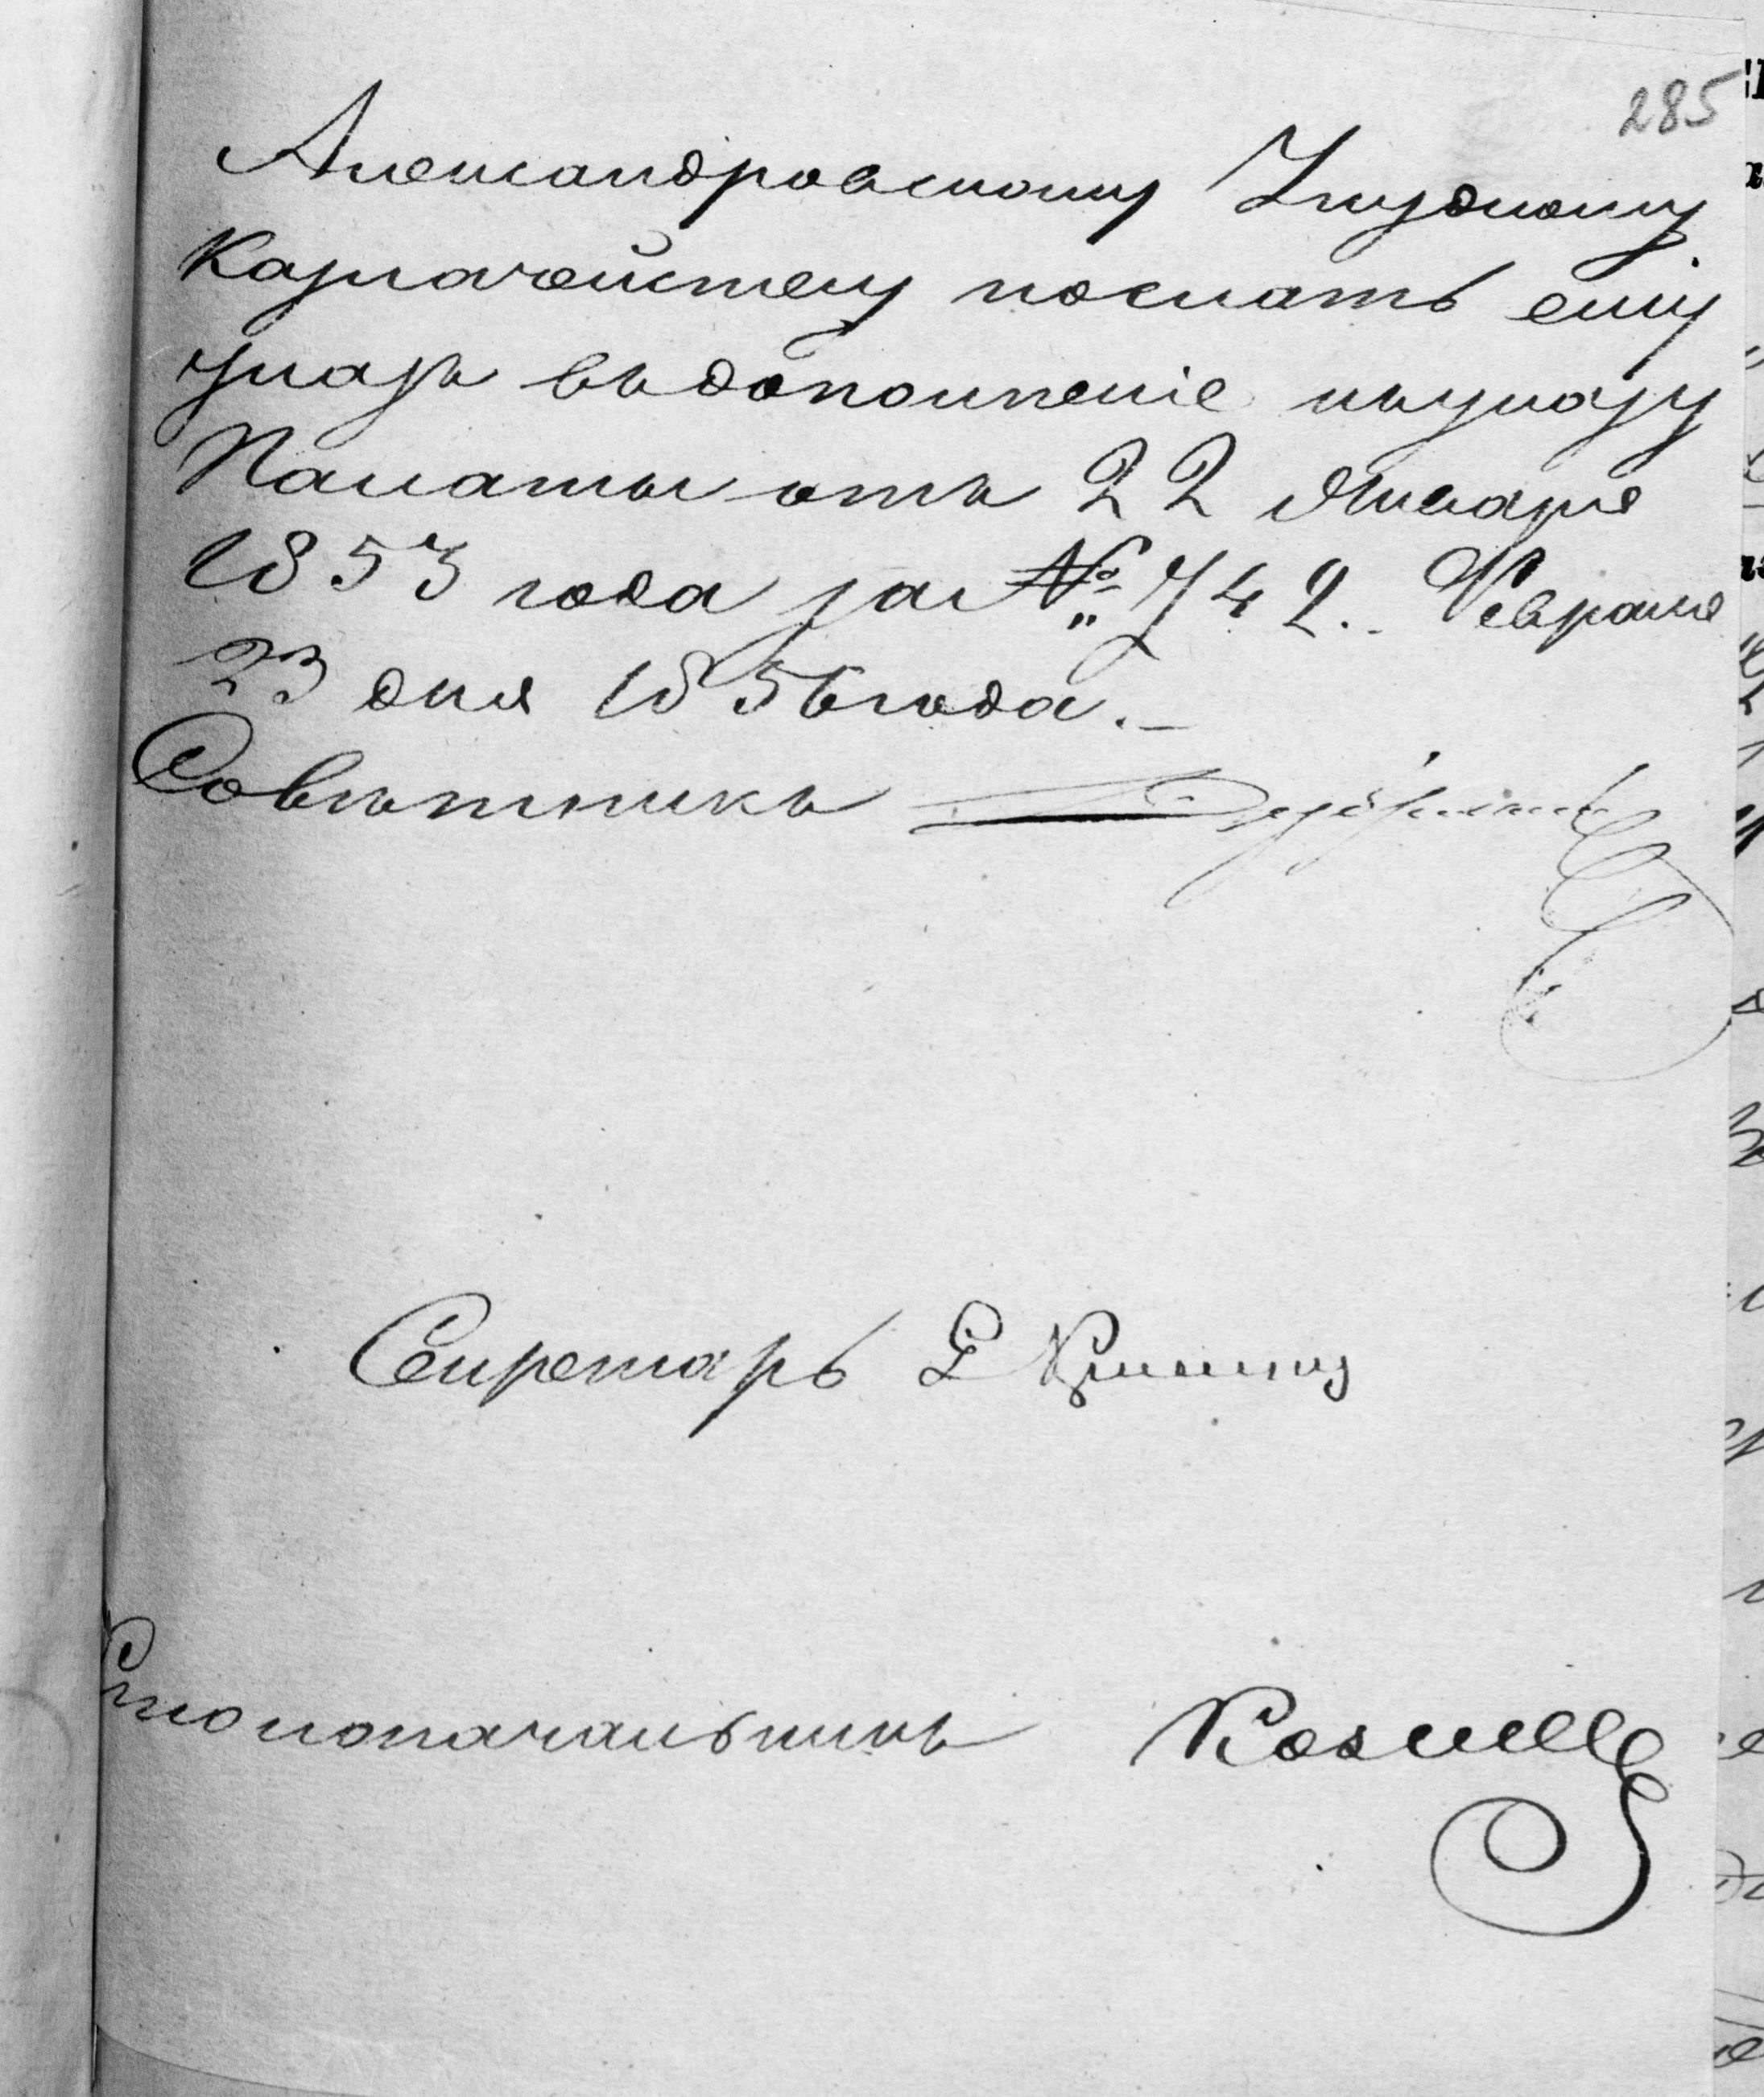 285
Александровскому Уѣздному
Казначейству послать ему
указъ въ дополненіе къ указу
Палаты отъ 22 Января
1853 года за № 742. Февраля
23 дня 1856 года.
Совѣтникъ
Секретарь
Столоначальникъ